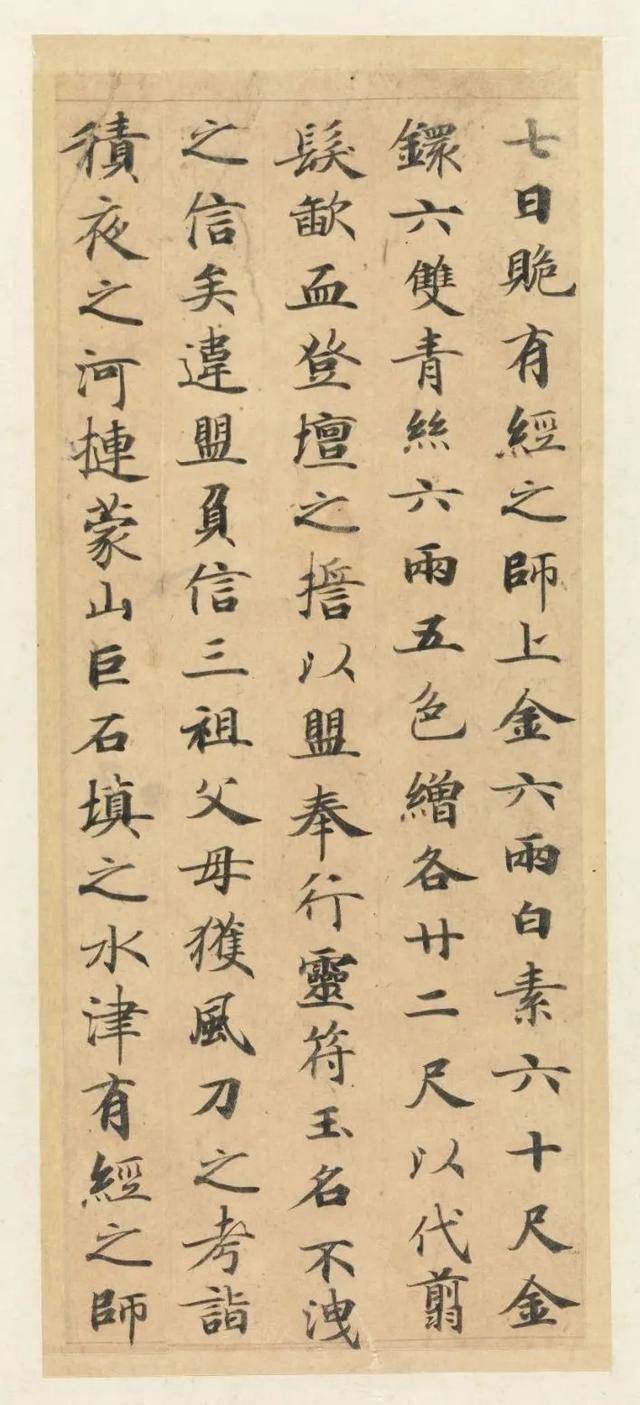 七日賝有經之師上金六兩白素六十尺金
鐶六雙青絲六兩五色繒各廿二尺以代翦
髮歃血登壇之㨪以盟奉行靈符玉名不洩
之信矣違盟負信三祖父母獲風刀之考詣
積夜之河摙蒙山巨石填之水津有經之師